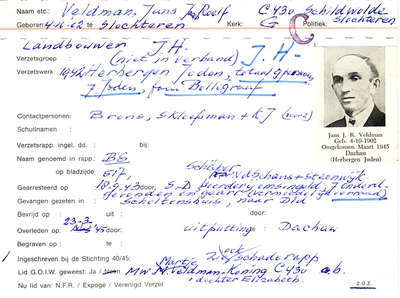 Naam etc.: Veldman, Jans Roelf C430 Schildwolde
Geboren 4-10-02 te Slochteren Kerk: G Politiek: Slochteren
Landbouwer J.H.
Verzetsgroep: (niet in verband) J.H-
Verzetswerk 1942 Herbergen Joden, totaal 9 personen,
7 Joden, fam Bollegraaf
Contactpersonen: Brons, Kloosman + KJ
Schuilnaam :
Verzetsrapp. ingel. dd. : bij:
Naam genoemd in rapp.: BS
op bladzijde: 517,
Schieber + Steenwijk
Gearresteerd op 18.9.43 door: S.D.
gevonden en gearr (vermoedelijk verraad)
Gevangen gezeten in: Scholtenshuis, naar Dld
Bevrijd op : uit door :
23-3-
Overleden op: '45 door: uitputting Dachau
Begraven op : te
Ingeschreven bij de Stichting 40/45: Martje, zie ook schaderapp
Lid G.O.I.W. geweest: Ja / Neen MW M. Veldman-Koning C430 a.b.
Nu lid van: N.F.R. / Expogé / Verenigd Verzet dochter Elizabeth.
z.o.z.
Jans J. R. Veldman
Geb. 4-10-1902
Omgekomen Maart 1945
Dachau
(Herbergen Joden)